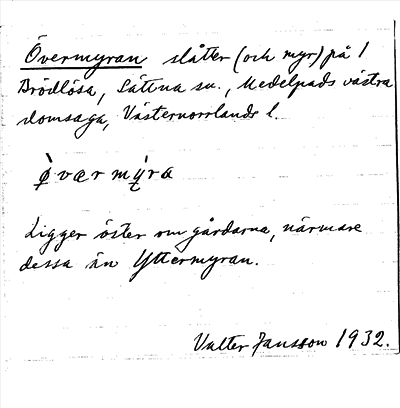 Övermyran slåtter (och myr) på 1
Brödlösa, Lättna sn., Medelpads västra
domsaga, Västernorrlands l.
ø̀værmỳra
Ligger öster om gårdarna, närmare
dessa än Yttermyran.
Valter Jansson 1932.